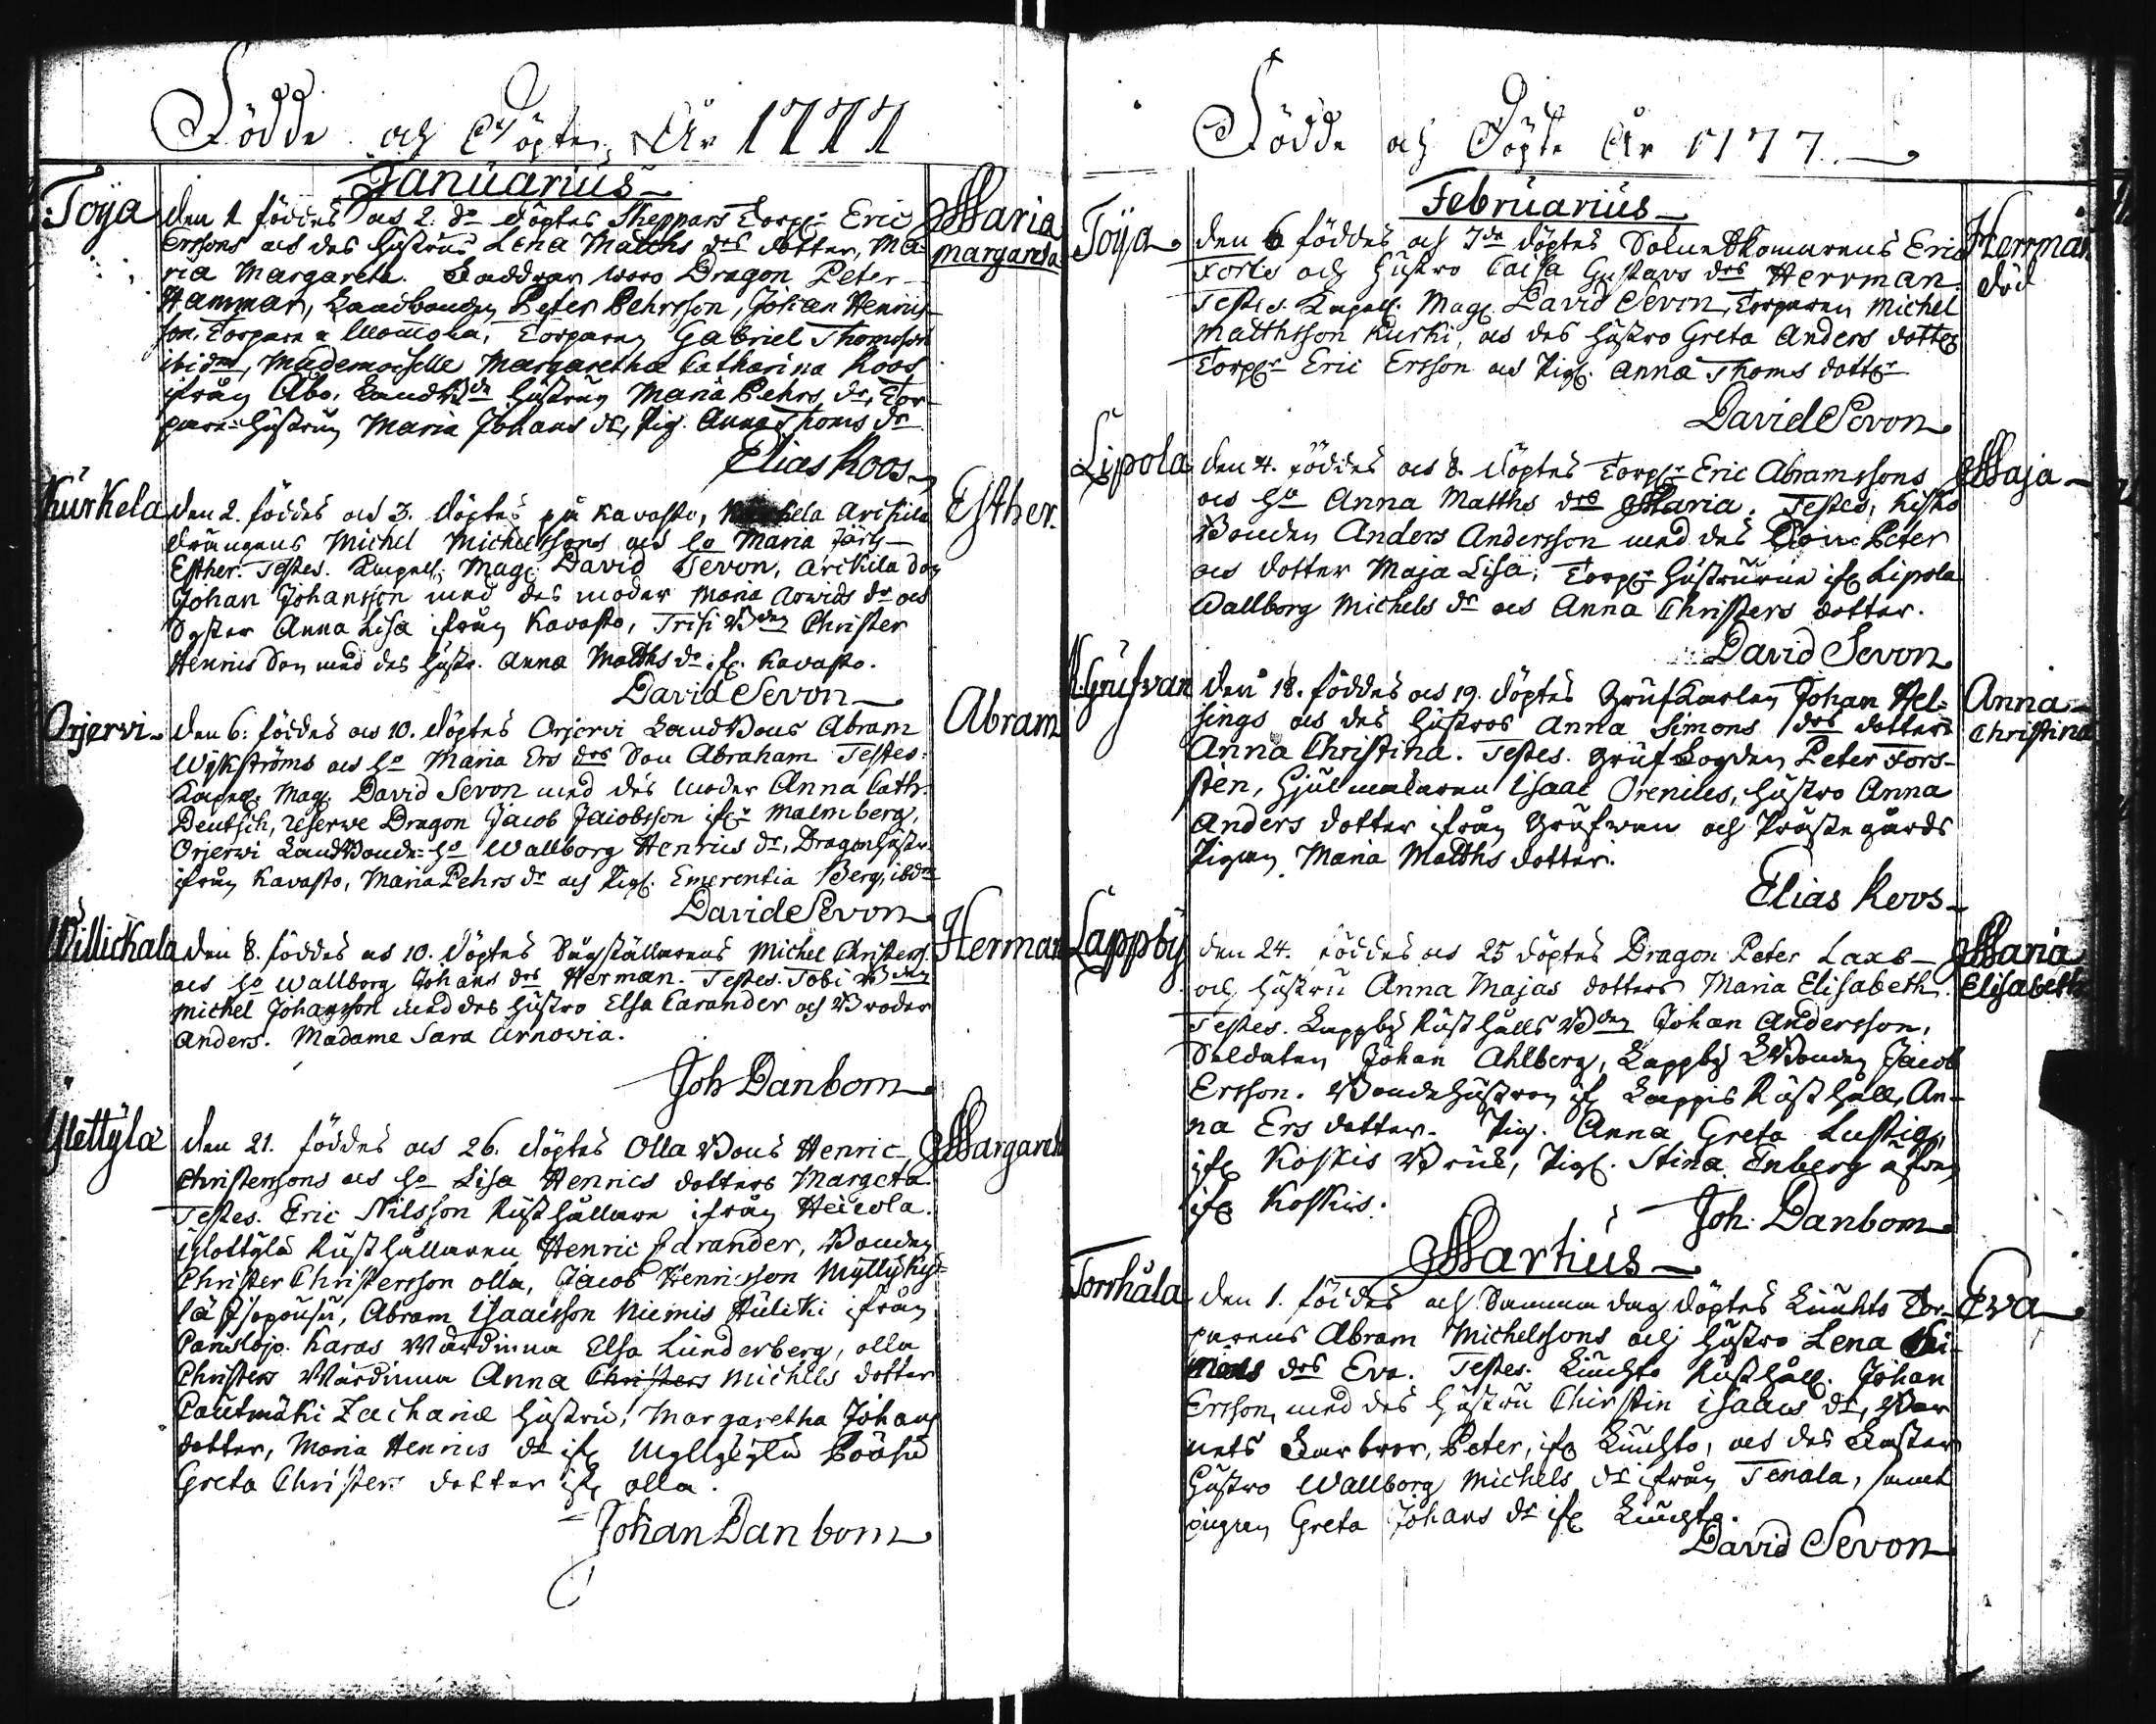 Födde och Döpte År 1777
Januarius
Toya den 1 föddes och 2. dito döptes Torp:r Eric Maria
Erssons och des hustrus Lena Matths drs dotter, Ma- Margareta
ria Margareta. Faddrar woro Dragon Peter
Hammar, Landbonden Peter Pehrsson, Johan Henrics-
son, Torpare Torparen Gabriel Thomsson
ibidm, Mademoiselle Margaretha Catharina Roos
ifrån Åbo, hustrun Maria Pehrs dr, Tor-
pare hustrun Maria Johans dr, Pig. Anna Thoms dr
Elias Roos
Kurkela den 2. föddes och 3. döptes på Kavasto, Arkila Esther.
drängens Michel Michelssons och ho Maria
Esther. Testes. Capell. Mag. David Sevon, Arkila
Johan Johansson med des moder Maria Arwids dr och
Syster Anna Lisa ifrån Kavasto, Trisi Bden Christer
Henricsson med des hustr. Anna Matths dr ifr. Kavasto.
David Sevon
Orjervi den 6. föddes och 10. döptes Orjervi LandBons Abram Abram
Wijkströms och ho Maria Ers drs Son Abraham Testes:
Capell. Mag. David Sevon med des moder Anna Cath.
Deutsch, reserve Dragon Jacob Jacobsson ifr Malmberg,
Orjerwi LandBonde ho Wallborg Henrics dr, Dragon hustr.
ifrån Kavasto, Maria Pehrs dr och Pig. Emerentia Berg, ibdm
David Sevon
Willickala den 8. föddes och 10. döptes Michel Christers. Herman
och ho Wallborg Johans drs Herman. Testes. Tobi Bden
Michel Johansson med des hustro Elsa Carander och Broder
Anders. Madame Sara Arnowia.
Joh Danbom
Ylettylä den 21. föddes och 26. döptes Olla Bons Henric Margareta
Christerssons och ho Lisa Henrics dotters Margeta
Testes. Eric Nilsson Rusthållare ifrån
Rusthållaren Henric Carander, Bonden
Christer Christersson olla, Jacob Henricsson Myllyky-
lä Abram Isaacsson Niemis ifrån
Karislojo. Karas Wärdinna Elsa Lunderberg, olla
Christers Wärdinna Anna Christers Michels dotter
Pautmäki Zachariæ hustru, Margaretha Johans
dotter, Maria Henrics dr ifr
Greta Christers dotter ifr olla.
Johan Danbom
Födde och Döpte År 1777.
Februarius
Toya den 6 föddes och 7de döptes Eric Herrman
och hustro Caisa Gustavs drs Herrman. död
Testes. Capell. Mag. David Sevon, Torparen Michel
Matthsson Kurki, och des hustro Greta Anders dotter
Torpr Eric Ersson och Pig. Anna Thoms dotter
David Sevon
Lipola den 4. föddes och 8. döptes Torpr Eric Abramssons Maja
och ho Anna Matths drs Maria. Testes, Kisko
Bonden Anders Andersson med des Son Peter
och dotter Maja Lisa, Torpr hustrurna ifr Lipola
Wallborg Michels dr och Anna Christers dotter.
David Sevon
Grufvan den 18. föddes och 19. döptes Grufkarlen Johan Hel- Anna
sings och des hustros Anna Simons drs dotter Christina
Anna Christina. Testes. Gruf Fogden Peter Fors-
sten, Hjulmakaren Isaac Orenius, hustro Anna
Anders dotter ifrån Grufwan och Prästegårds
Pigan Maria Matths dotter.
Elias Roos
Lappby den 24. föddes och 25 döptes Dragon Peter Laxs Maria
och hustru Anna Majas dotters Maria Elisabeth. Elisabeth
Testes. Lappby Rusthålls Bden Johan Andersson,
Soldaten Johan Ahlberg, Lappby Bonden Jacob
Ersson. Bondehustron ifr Lappis Rusthåll, An-
na Ers dotter. Pig. Anna Greta Lustig,
ifr Koskis Bruk, Pig. Stina Enberg
ifr Koskis.
Joh. Danbom
Martius
Torrhåla den 1. föddes och Samma dag döptes Tor- Eva
parens Abram Michelssons och hustro Lena
drs Eva. Testes. Rusthåll. Johan
Ersson, med des hustru Chirstin Isaacs dr, Bar
nets Farbror, Peter, ifr och des Faster
hustro Wallborg Michels dr ifrån Tenala, samt
pigan Greta Johans dr ifr
David Sevon